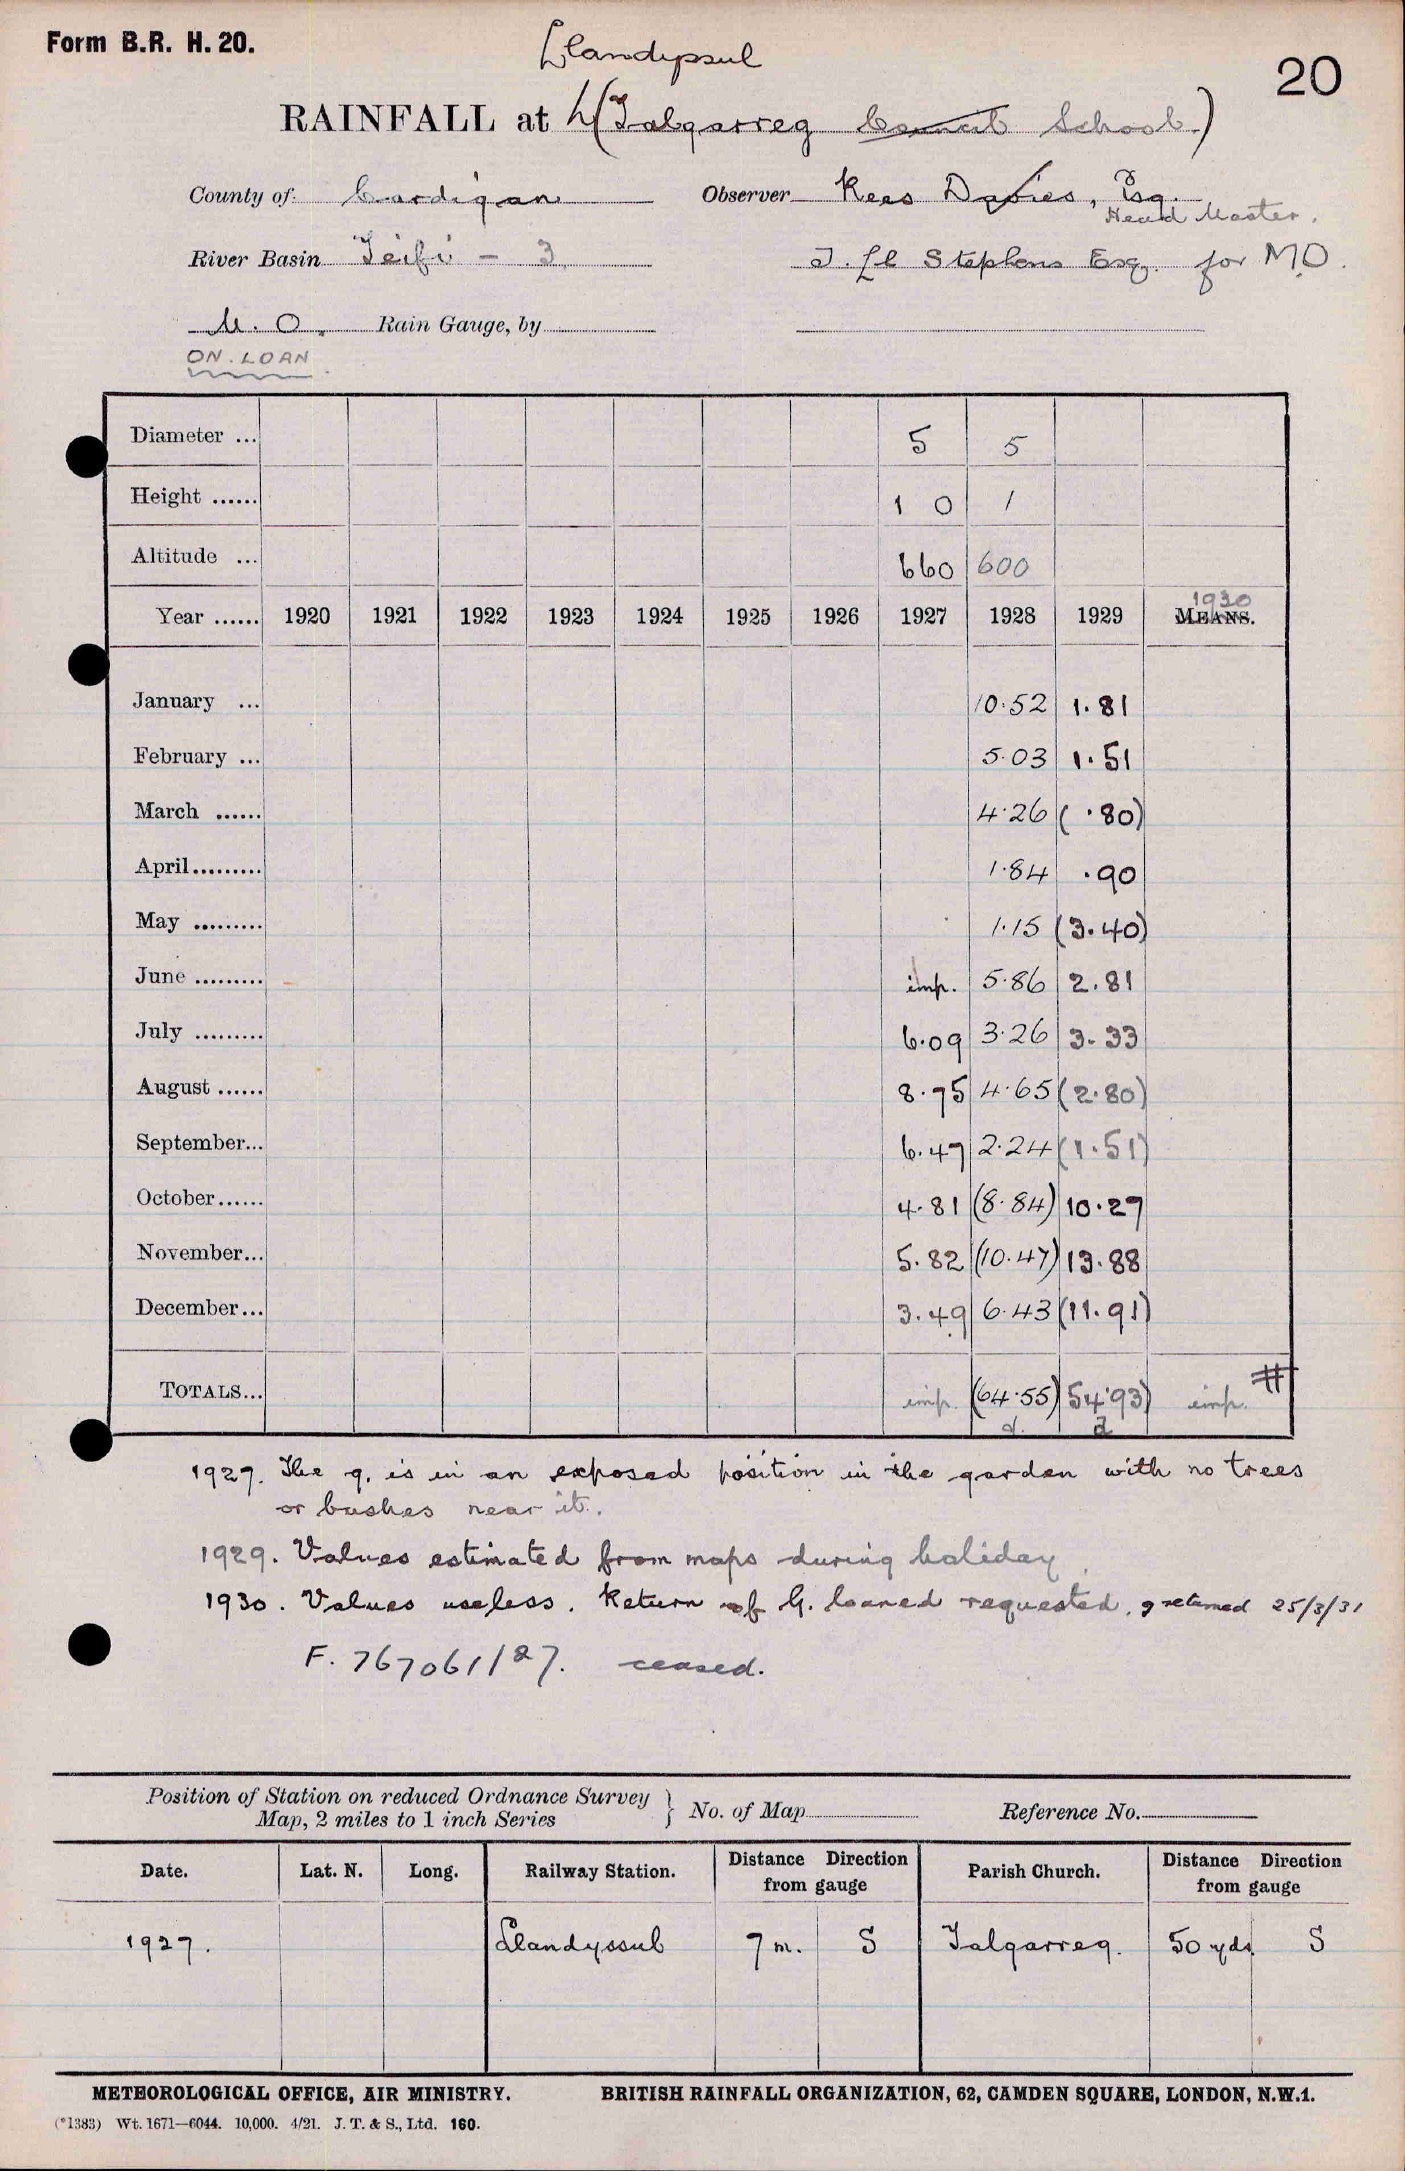 Form B.R. H. 20.
20
Llandyssul
RAINFALL at (Talgarreg Council School)
County of Cardigan Observer Rees Davies, Esq.
Head Master.
River Basin Teifi - 3 Stephens Esq. for M.O.
M. O. Rain Gauge, by
ON LOAN
Diameter ... 5 5
Height ...... 1 0 1
Altitude ... 660 600
1930
Year ...... 1920 1921 1922 1923 1924 1925 1926 1927 1928 1929 MEANS.
January ... 10.52 1.81
February ... 5.03 1.51
March ...... 4.26 (.80)
April ......... 1.84 .90
May ......... 1.15 (3.40)
June ......... imp. 5.86 2.81
July ......... 6.09 3.26 3.33
August ...... 8.75 4.65 (2.80)
September... 6.47 2.24 (1.51)
October...... 4.81 (8.84) 10.27
November... 5.82 (10.47) 13.88
December... 3.49 6.43 (11.91)
TOTALS... imp. (64.55) 54.93) imp. #
d. a
1927. The g. is in an exposed position in the garden with no trees
or bushes near it.
1929. Values estimated from maps during holiday
1930. Values useless. Return of G. loaned requested, g returned 25/3/31
F. 767061/27. ceased.
Position of Station on reduced Ordnance Survey
Map, 2 miles to 1 inch Series } No. of Map Reference No.
Date. Lat. N. Long. Railway Station. Distance Direction from gauge Parish Church. Distance Direction from gauge
1927. Llandyssul 7 m. S Talgarreg. 50 yds. S
METEOROLOGICAL OFFICE, AIR MINISTRY. BRITISH RAINFALL ORGANIZATION, 62, CAMDEN SQUARE, LONDON, N.W.1.
(*1383) Wt. 1671—6044. 10,000. 4/21. J. T. & S., Ltd. 160.